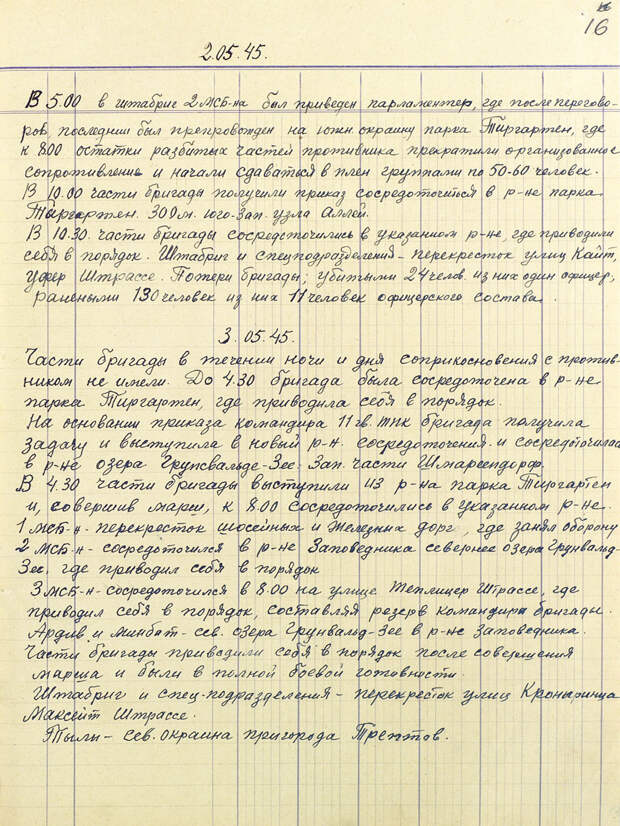 16
2.05.45.
В 5.00 в штабриг 2 МСБ-на был приведен парламентер, где после перегово-
ров, последний был препровожден на южн окраину парка Тиргартен, где
к 8.00 остатки разбитых частей противника прекратили организованное
сопротивление и начали сдаваться в плен группами по 50-60 человек.
В 10.00 части бригады получили приказ сосредоточиться в р-не парка
Тиргартен. 300 м. юго-зап. узла Аллей.
В 10.30. части бригады сосредоточились в указанном р-не, где приводили
себя в порядок. Штабриг и спецподразделения - перекресток улиц Кайт,
Уфер Штрассе. Потери бригады; убитыми 24 челов. из них один офицер,
ранеными 130 человек из них 11 человек офицерского состава.
3.05.45.
Части бригады в течении ночи и дня соприкосновения с против-
ником не имели. До 4.30 бригада была сосредоточена в р-не
парка Тиргартен, где приводила себя в порядок.
На основании приказа командира 11 гв. тпк бригада получила
задачу и выступила в новый р-н. сосредоточения и сосредоточилась
в р-не озера Грунсвальде-Зее. Зап. части Шмаргендорф.
В 4.30 части бригады выступили из р-на парка Тиргартен
и, совершив марш, к 8.00 сосредоточились в указанном р-не.
1 мсб-н - перекресток шоссейных и железных дорг, где занял оборону
2 МСБ-н - сосредоточился в р-не Заповедника севернее озера Грунвальд-
Зее, где приводил себя в порядок
3 мсб-н - сосредоточился в 8.00 на улице Теплицер Штрассе, где
приводил себя в порядок, составляя резерв командира бригады.
Ардив и минбат - сев. озера Грунвальд-Зее в р-не Заповедника.
Части бригады приводили себя в порядок после совершения
марша и были в полной боевой готовности.
Штабриг и спец-подразделения - перекресток улиц Кронпринца
Максейт Штрассе.
Тылы - сев. окраина пригорода Трептов.